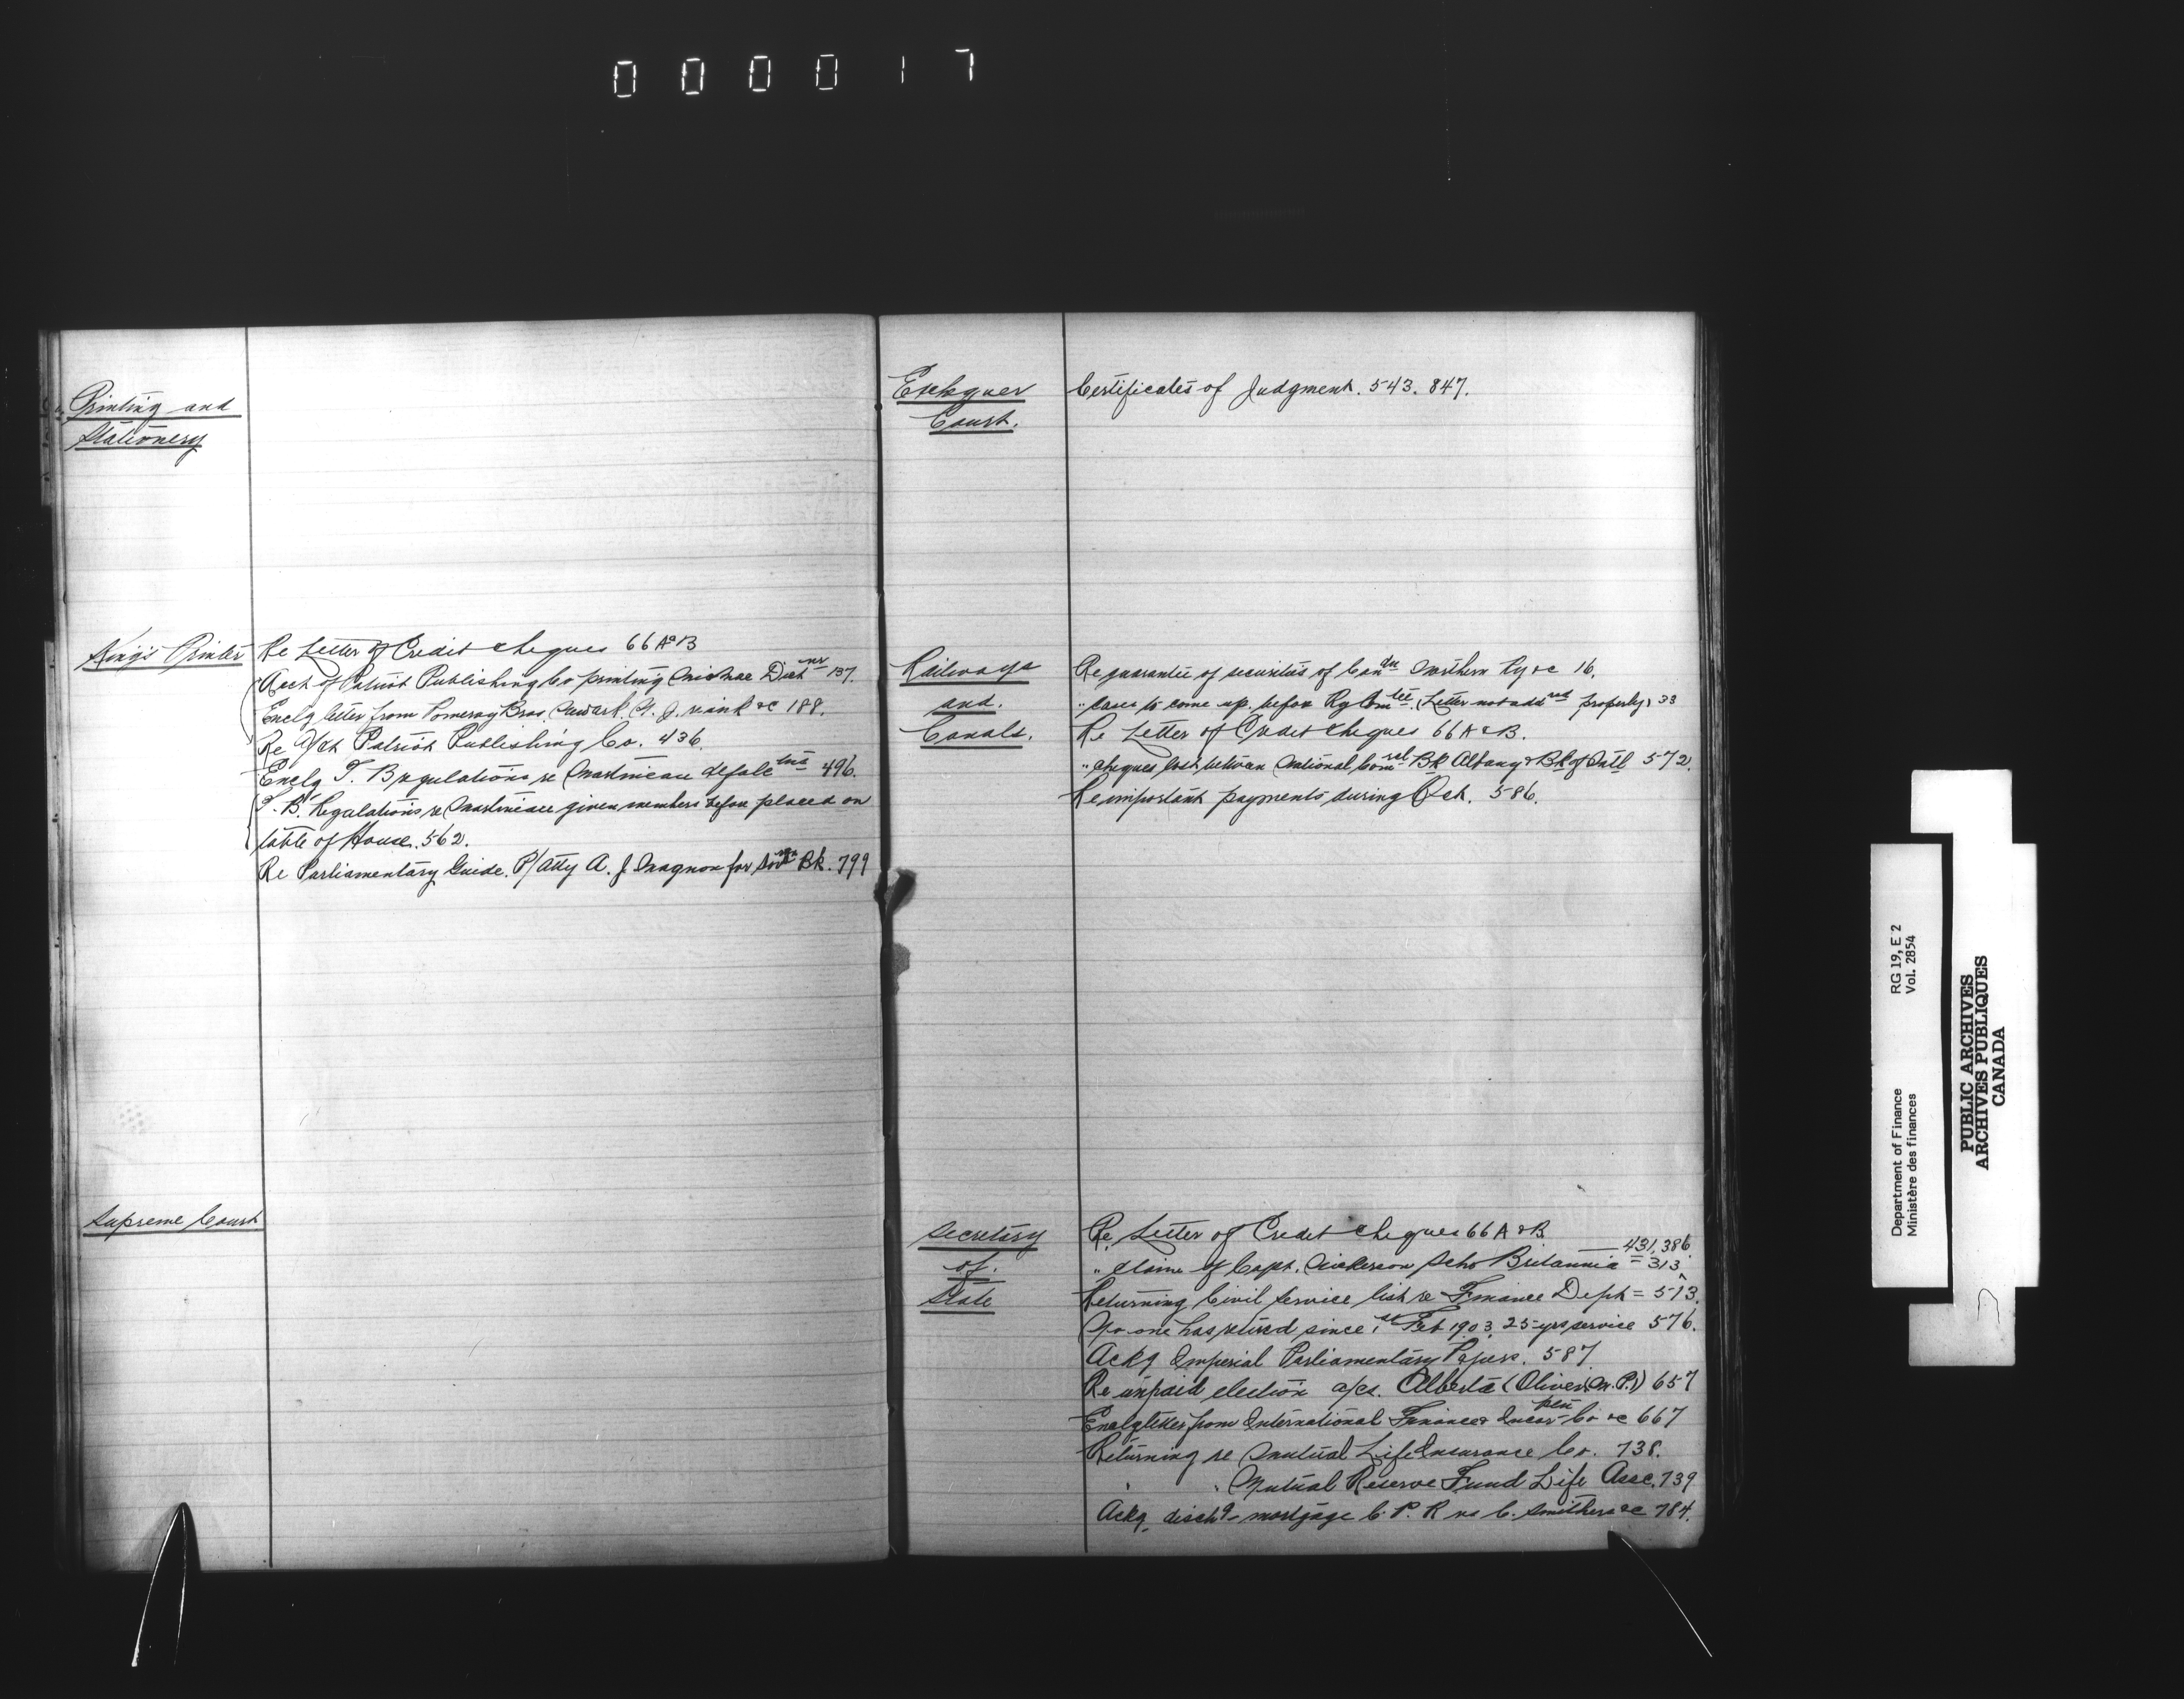 000017
Printing and
Stationery
King's Printer
Re Letter of Credit cheques 66 A & B
Acct of Patriot Publishing Co printing Micmac Dictnr 137.
Enclg letter from Pomeroy Bros. Newark. N. J. re ink &c 188.
Re a/ct Patriot Publishing Co. 436.
Enclg T. B regulations re Martineau defalctns 496.
T. B. Regulations re Martineau given members before placed on
table of House. 562.
Re Parliamentary Guide. P/Atty A. J. Magnon for Bk. 799
Supreme Court
Exchequer
Court.
Certificates of Judgment. 543. 847.
Railways
and.
Canals.
Re guarantee of securities of Candn Northern Ry &c 16.
" cases to come up. before Ry Comtee. (Letter not addred properly) 33
Re Letter of Credit cheques 66 A & B.
" cheques lost between National Comrcl Bk Albany & Bk of Mtl 572.
Re important payments during Oct. 586.
Secretary
of.
State
Re. Letter of Credit cheques 66 A & B.
431, 386.
" claim of Capt. Nickerson Schr Britannia = 313
Returning Civil Service list re Finance Dept = 513.
No one has retired since 1st Feb 1903. 25 yrs service 576.
Ackg Imperial Parliamentary Papers. 587.
Re unpaid election a/cs. Alberta (Oliver (M. P.)) 657
Enclg letter from International Finance & Co &c 667
Returning re Mutual Life Insurance Co. 738.
" " Mutual Reserve Fund Life Assc. 739
Ackg. dischg mortgage C. P. R vs C. Smithers &c 784.
Department of Finance RG 19, E 2
Ministère des finances Vol. 2854
PUBLIC ARCHIVES
ARCHIVES PUBLIQUES
CANADA